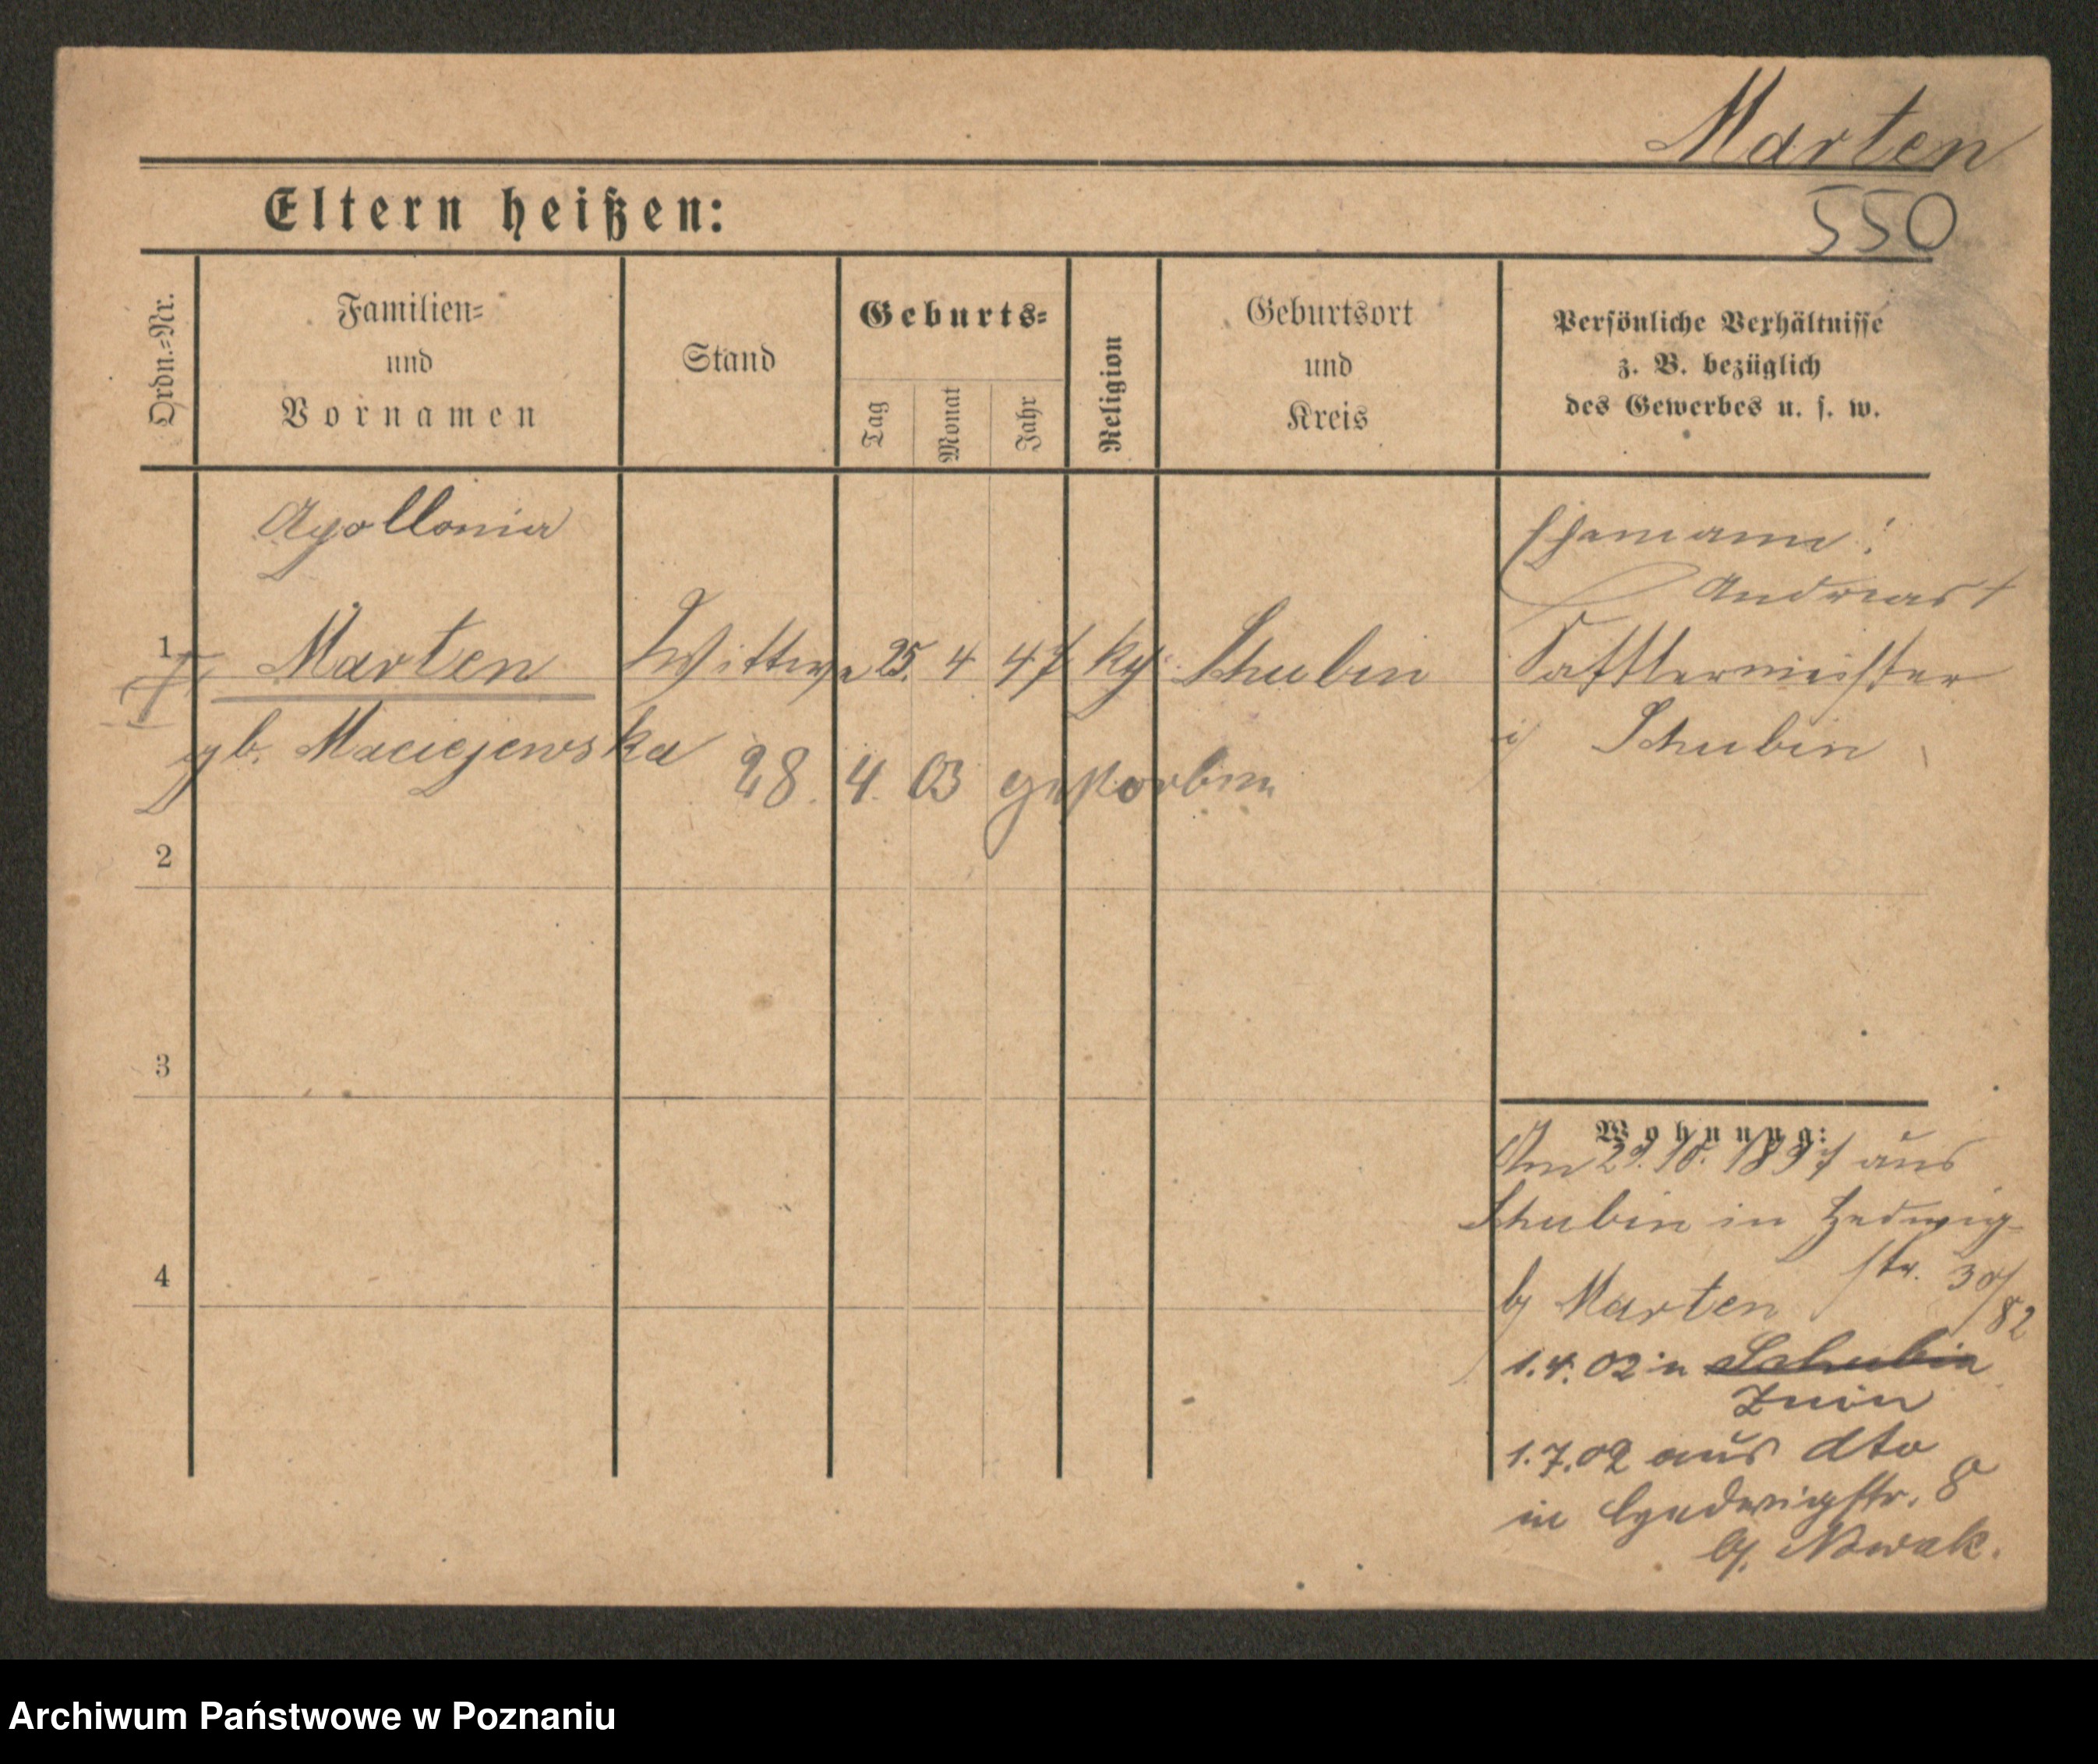 Marten
550
Eltern heißen:
Ordn.=Nr.
Familien=
und
Vornamen
Stand
Geburts=
Tag
Monat
Jahr
Religion
Geburtsort
und
Kreis
Persönliche Verhältnisse
z. B. bezüglich
des Gewerbes u. s. w.
Apollonia
1 Marten Wittwe 25. 4 47 kg. Schubin
gb. Maciejewska
28. 4. 03 gestorben
Ehemann:
Andreas †
Sattlermeister
Schubin
2
3
4
Wohnung:
Am 29. 10. 1897 aus
Schubin in Hedwig-
str. 30/82
b/ Marten
1.4.02 in Schubin
Znin
1.7.02 aus dto
in Hedwigstr. 8
b/. Nowak.
Archiwum Państwowe w Poznaniu